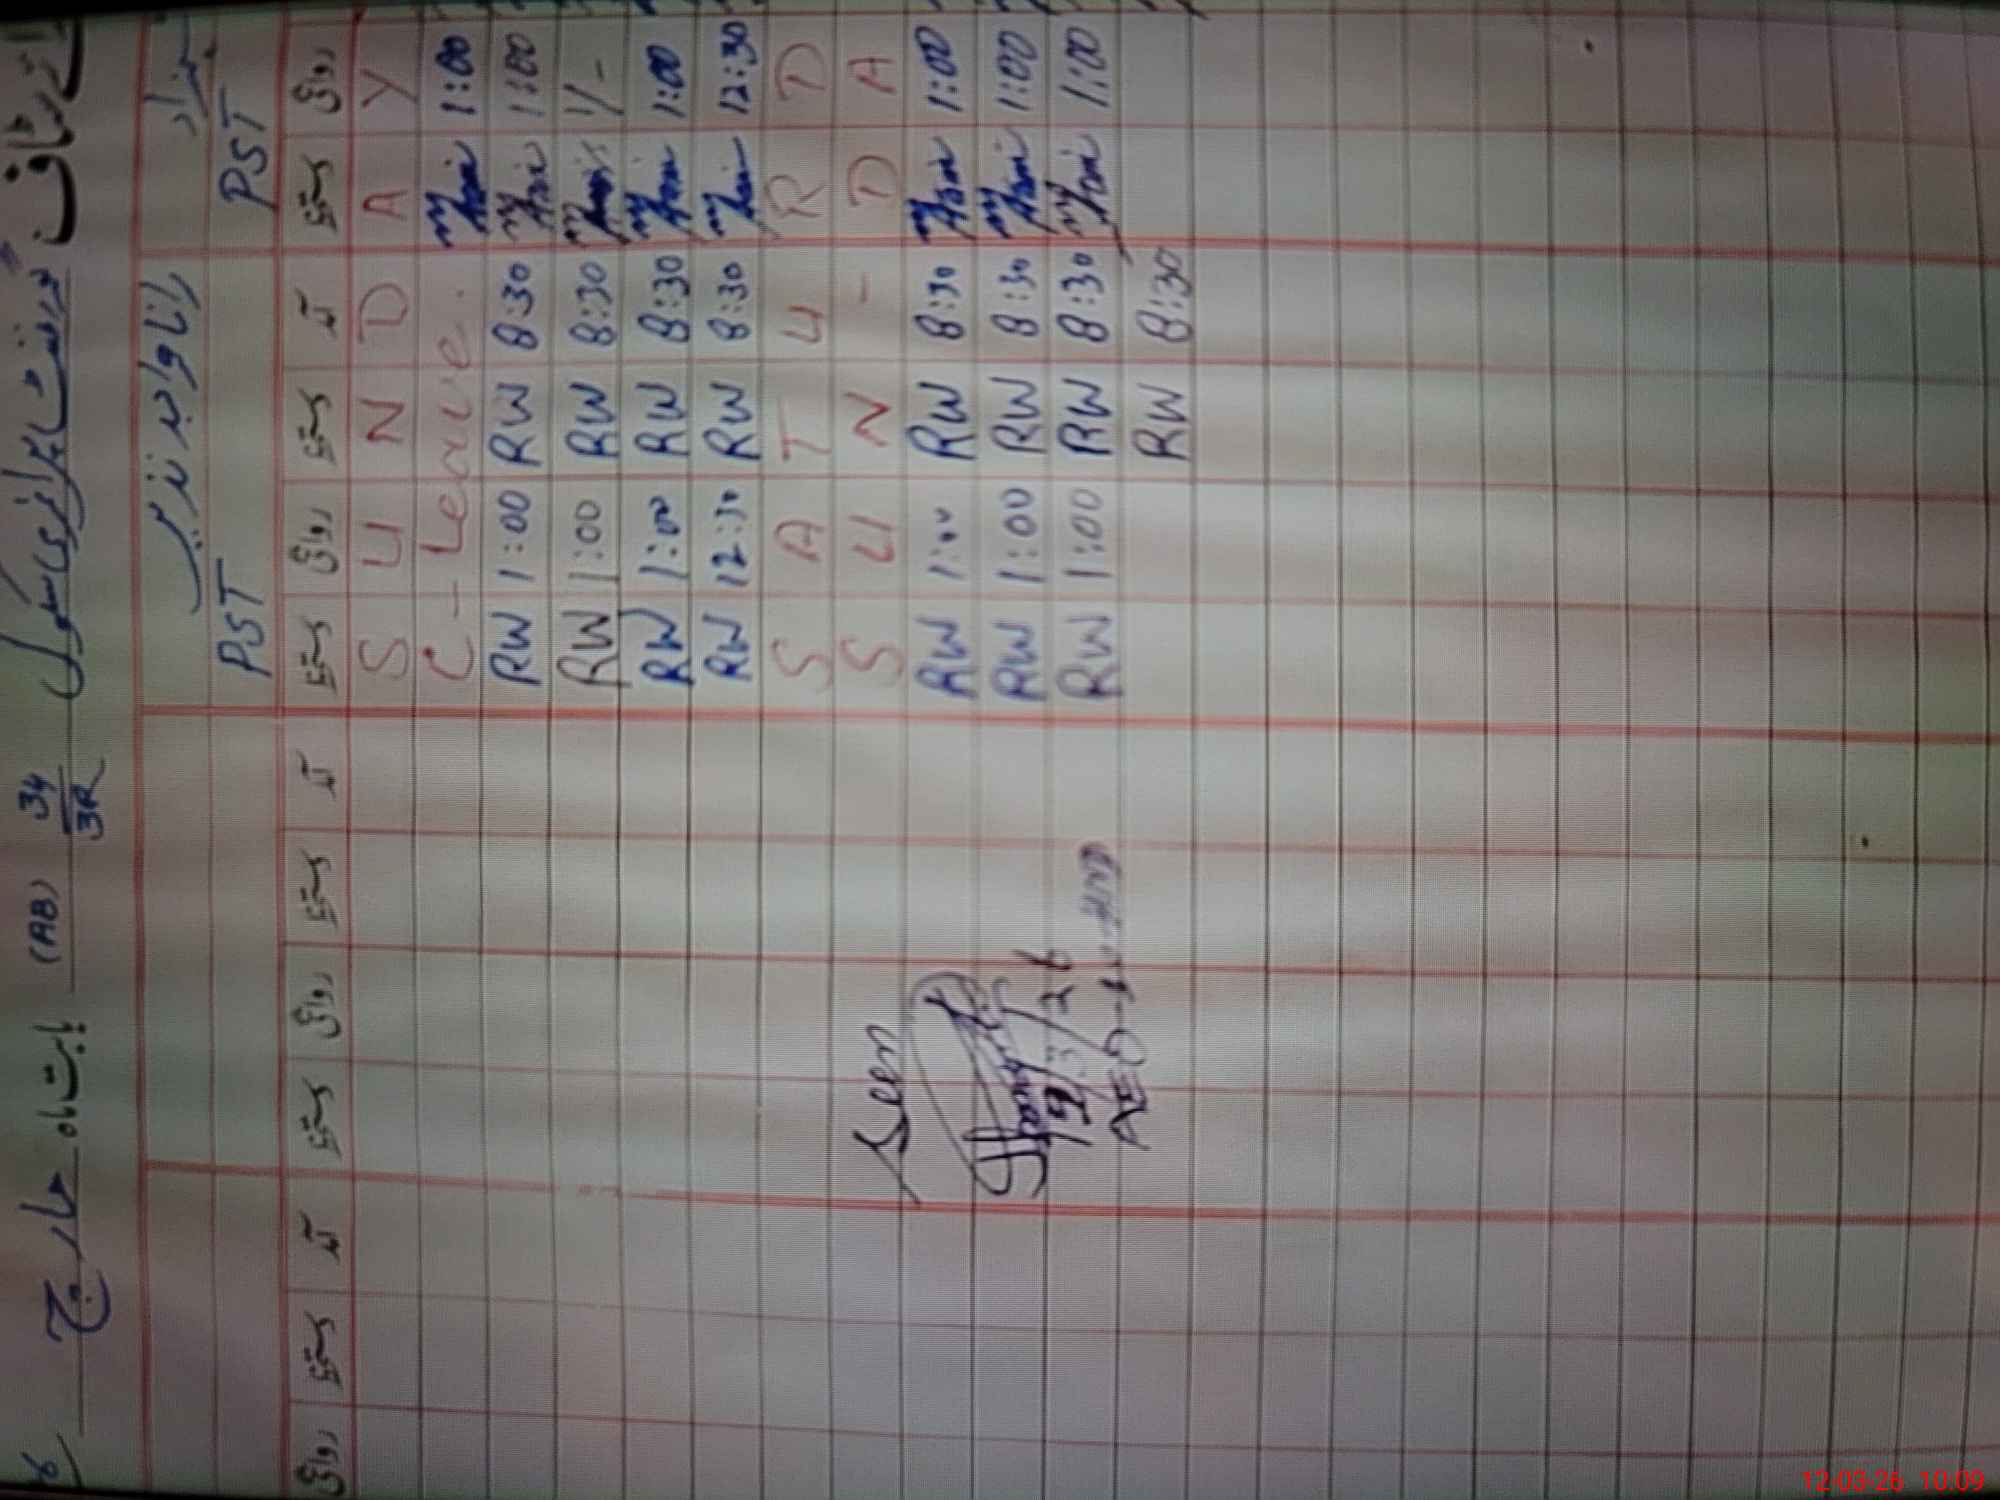 گورنمنٹ پرائمری سکول 34/3R (AB) بابت ماہ مارچ
رانا واجد نذیر
PST PST
روانگی دستخط آمد دستخط روانگی دستخط آمد دستخط روانگی دستخط آمد دستخط روانگی
S U N D A Y
C-Leave. 1:00
RW 1:00 RW 8:30 1:00
RW 1:00 RW 8:30 1/-
RW 1:00 RW 8:30 1:00
RW 12:30 RW 8:30 12:30
S A T U R D
S U N - D A
RW 1:00 RW 8:30 1:00
RW 1:00 RW 8:30 1:00
RW 1:00 RW 8:30 1:00
RW 8:30
Seen
AEO
12-03-26 10:09